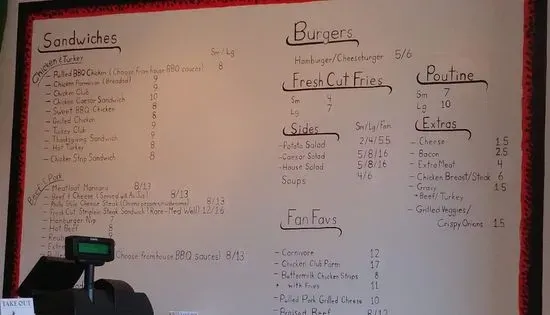 Sandwiches
Sm/Lg
Chicken & Turkey
- Pulled BBQ Chicken (Choose from house BBQ sauces) 8
- Chicken Parmesan (Breaded) 9
- Chicken Club 9
- Chicken Caesar Sandwich 10
- Sweet BBQ Chicken 8
- Grilled Chicken 8
- Turkey Club 9
- Thanksgiving Sandwich 9
- Hot Turkey 8
- Chicken Strip Sandwich 8
Beef & Pork
- Meatloaf 8/13
- Beef & Cheese (Served w/ Au Jus) 8/13
- Philly Style Cheese Steak 8/13
- Fresh Cut Striploin Steak Sandwich (Rare-Med Well) 12/16
- Hamburger Nip
- Hot Beef 8
(Choose from house BBQ sauces) 8/13
Burgers
Hamburger/Cheeseburger 5/6
Fresh Cut Fries
Sm 4
Lg 7
Sides
Sm/Lg/Fam
- Potato Salad 2/4/5.5
- Caesar Salad 5/8/16
- House Salad 5/8/16
Soups 4/6
Fan Favs
- Carnivore 12
- Chicken Club Parm 17
- Buttermilk Chicken Strips 8
+ with Fries 11
- Pulled Pork Grilled Cheese 10
- Braised Beef 8/13
Poutine
Sm 7
Lg 10
Extras
- Cheese 1.5
- Bacon 2.5
- Extra Meat 4
- Chicken Breast/Steak 6
- Gravy 1.5
Beef/Turkey
- Grilled Veggies/
Crispy Onions 1.5
TAKE OUT